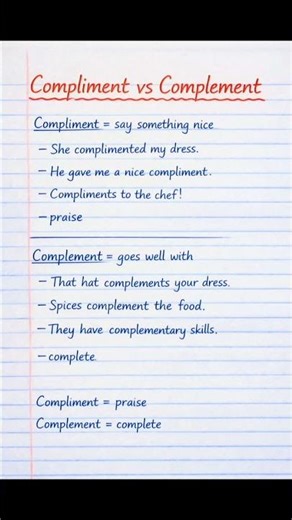 Compliment vs Complement
Compliment = say something nice
– She complimented my dress.
– He gave me a nice compliment.
– Compliments to the chef!
– praise
Complement = goes well with
– That hat complements your dress.
– Spices complement the food.
– They have complementary skills.
– complete
Compliment = praise
Complement = complete